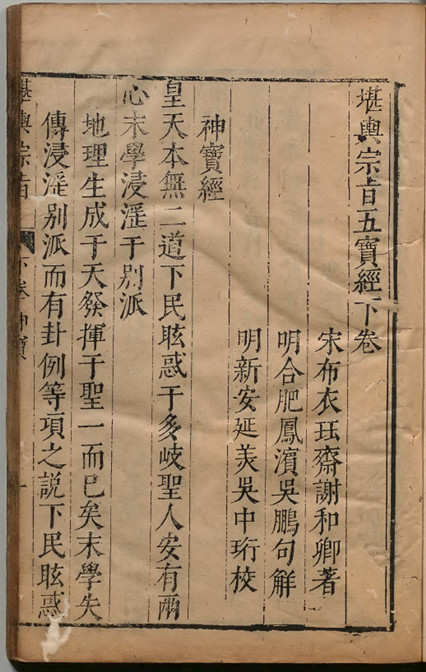 堪輿宗旨五寶經下卷
宋布衣珏齋謝和卿著
明合肥鳳濱吳鵬句解
明新安延美吳中珩校
神寶經
皇天本無二道下民眩惑于多岐聖人安有兩
心末學浸滛于別派
地理生成于天發揮于聖一而已矣末學失
傳浸滛別派而有卦例等項之說下民眩惑
堪輿宗旨 下卷神寶 一